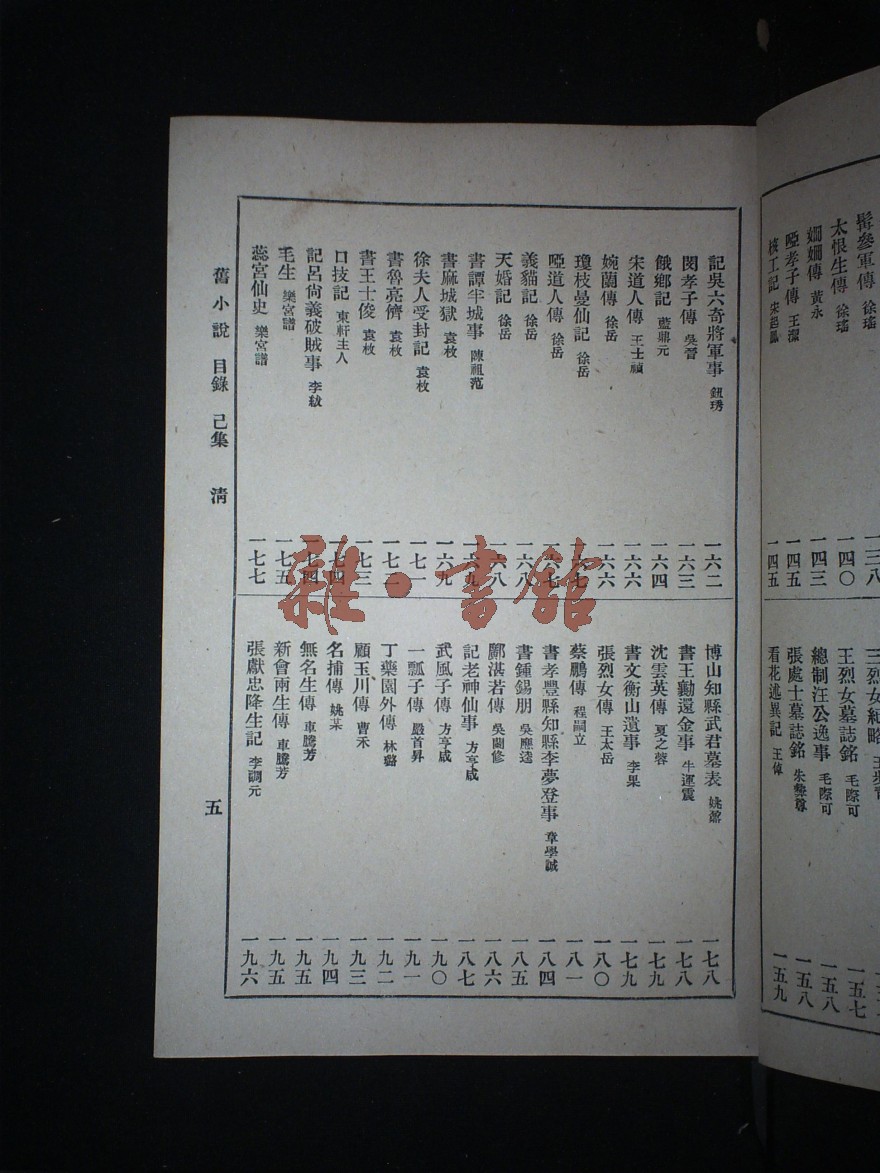 髯參軍傳 徐瑤 一三八
太恨生傳 徐瑤 一四〇
姍姍傳 黃永 一四三
啞孝子傳 王潔 一四五
核工記 宋起鳳 一四五
王烈女墓誌銘 毛際可 一五七
總制汪公逸事 毛際可 一五八
張處士墓誌銘 朱彝尊 一五八
看花述異記 王倬 一五九
記吳六奇將軍事 鈕琇 一六二
閔孝子傳 吳晉 一六三
餓鄉記 藍鼎元 一六四
宋道人傳 王士禎 一六六
婉蘭傳 徐岳 一六六
瓊枝曼仙記 徐岳 一六七
啞道人傳 徐岳 一六七
義貓記 徐岳 一六八
天婚記 徐岳 一六八
書譚半城事 陳祖范 一六九
書麻城獄 袁枚 一六九
徐夫人受封記 袁枚 一七一
書魯亮儕 袁枚 一七二
書王士俊 袁枚 一七三
口技記 東軒主人 一七四
記呂尚義破賊事 李紱 一七四
毛生 樂宮譜 一七五
蕊宮仙史 樂宮譜 一七七
博山知縣武君墓表 姚鼐 一七八
書王勤還金事 牛運震 一七八
沈雲英傳 夏之蓉 一七九
書文衡山遺事 李果 一七九
張烈女傳 王太岳 一八〇
蔡鵬傳 程嗣立 一八一
書孝豐縣知縣李夢登事 章學誠 一八四
書鍾錫朋 吳應逵 一八五
鄺湛若傳 吳蘭修 一八六
記老神仙事 方亨咸 一八七
武風子傳 方亨咸 一九〇
一瓢子傳 嚴首昇 一九一
丁藥園外傳 林璐 一九二
顧玉川傳 曹禾 一九三
名捕傳 姚某 一九四
無名生傳 車騰芳 一九五
新會兩生傳 車騰芳 一九五
張獻忠降生記 李調元 一九六
舊小說 目錄 己集 清 五
雜·書館